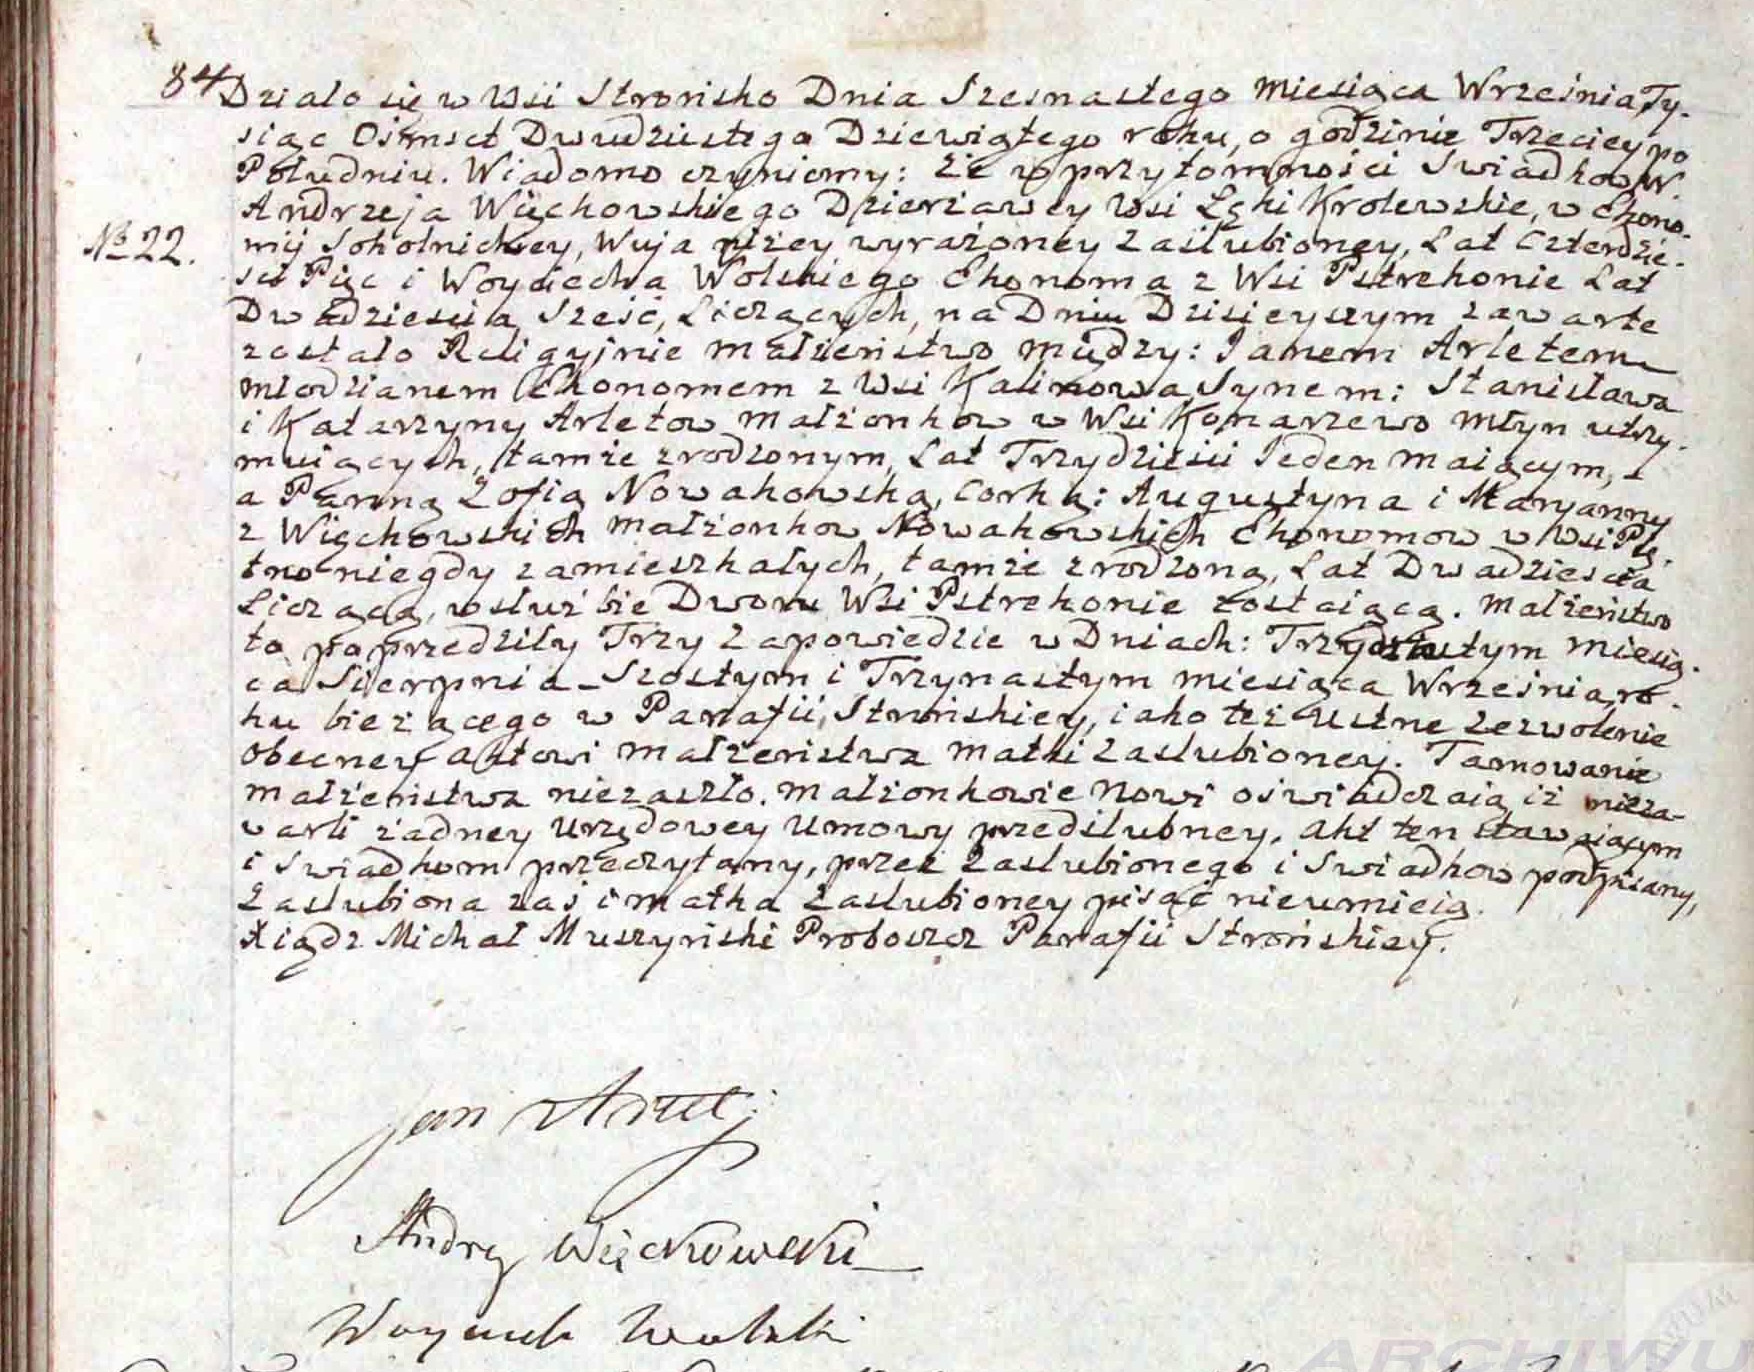 84 Działo się w Wsi Strońsko Dnia Szesnastego Miesiąca Września Ty-
siąc Ośmset Dwudziestego Dziewiątego roku, o godzinie Trzeciey po
Południu. Wiadomo czyniemy: że w przytomności Swiadkow W.
Andrzeja Więckowskiego Dzierżawcy Wsi Łęki Krolewskie, w Ekono-
No 22.
mij Sokolnickiey, Wuja niżey wyrażoney Zaślubioney, Lat Czterdzie-
sci Pięc i Woyciecha Wolskiego Ekonoma z Wsi Pstrekonie Lat
Dwadziescia Sześć, Liczących, na Dniu Dzisieyszym zawarte
zostało Religyjnie małżeństwo między: Janem Arletem
młodzianem Ekonomem z Wsi Kalinowa, Synem: Stanisława
i Katarzyny Arletow Małżonkow w Wsi Komarzewo młyn utrzy-
muiących, tamże zrodzonym, Lat Trzydziesci Jeden maiącym,
a Panną Zofią Nowakowską, Corką: Augustyna i Maryanny
z Więckowskich Małżonkow Nowakowskich Ekonomow w Wsi Plę-
tno niegdy zamieszkałych, tamże zrodzoną, Lat Dwadziescia
Liczącą, w służbie Dworu Wsi Pstrekonie zostaiącą. Małżeństwo
to poprzedziły Trzy Zapowiedzie w Dniach: Trzydziestym miesią-
ca Sierpnia _ Szostym i Trzynastym miesiąca Września, ro-
ku bieżącego w Parafii, Strońskiey, iako też Ustne zezwolenie
obecney aktowi małżeństwa matki Zaslubioney. Tamowanie
małżeństwa niezaszło. Małżonkowie Nowi oświadczaią iż nieza-
warli żadney Urzędowey Umowy przedślubney, Akt ten stawaiącym
i Swiadkom przeczytany, przez Zaslubionego i Swiadkow podpisany,
Zaslubiona zaś i matka Zaslubioney pisać nieumieią.
Xiądz Michał Muszyński Proboszcz Parafii Strońskiey.
Jan Arlet
Andrzy Więckowski
Woyciech Wolski
ARCHIWU